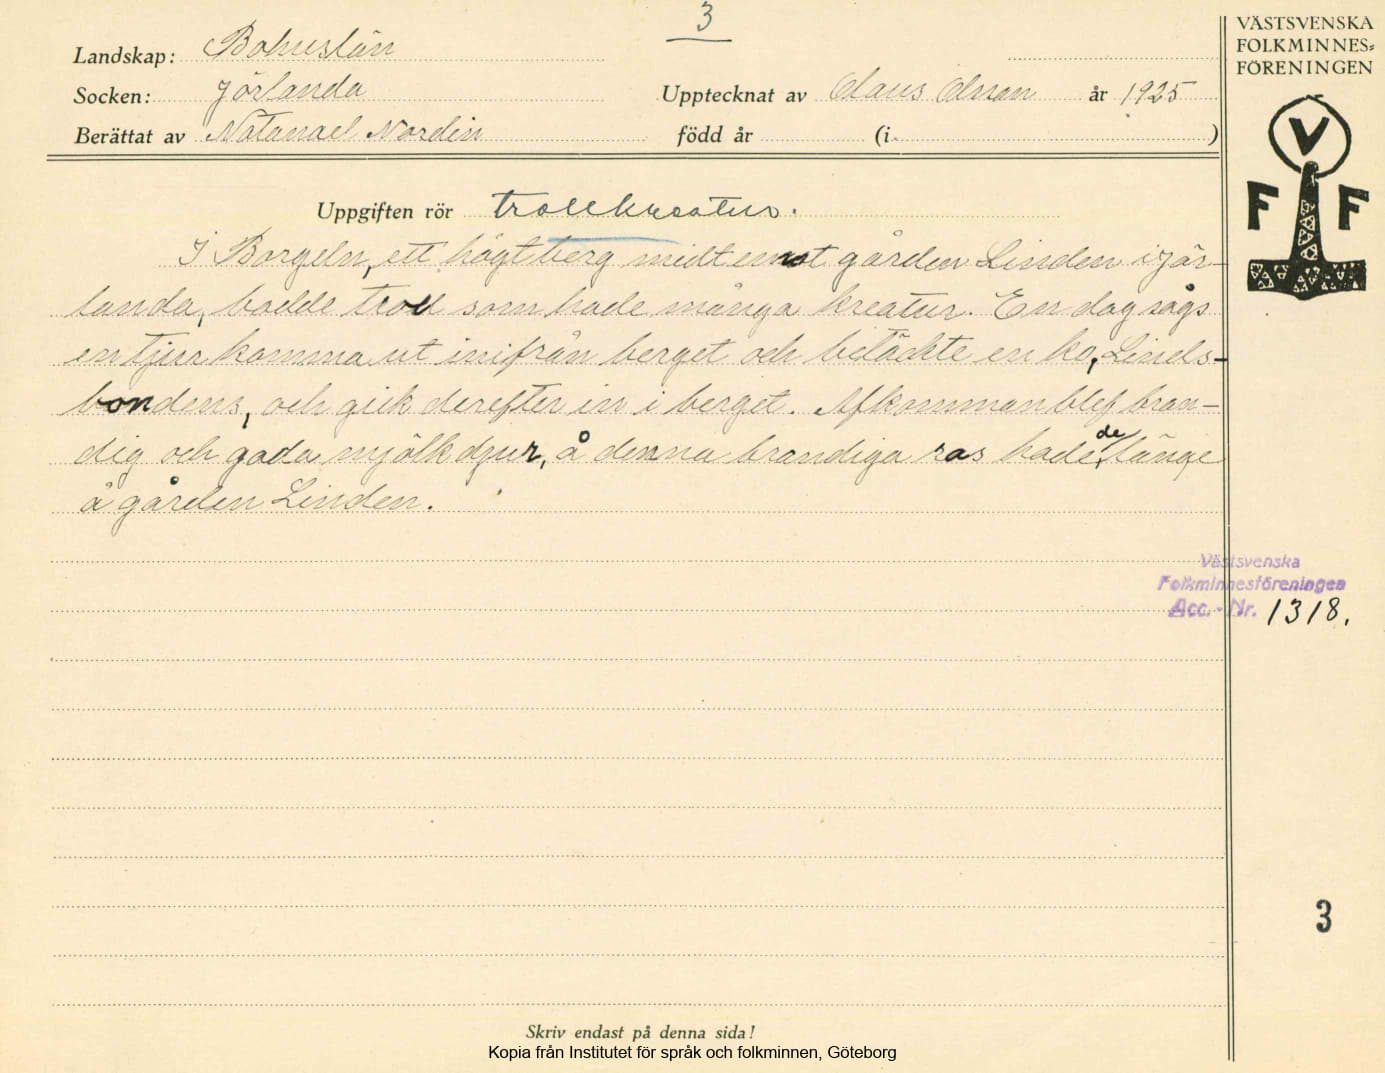 3
VÄSTSVENSKA
FOLKMINNES=
FÖRENINGEN
Landskap: Bohuslän
Socken: Jörlanda
Upptecknat av Olaus Olsson år 1925
Berättat av Natanael Nordin
född år (i )
V
F F
Uppgiften rör trollkreatur.
I Borgeln, ett högt berg midt emot gården Linden i Jör-
landa, bodde troll som hade många kreatur. En dag sågs
en tjur komma ut inifrån berget och betäckte en ko, Linds-
bondens, och gick derefter in i berget. Afkomman blef bran-
dig och goda mjölkdjur, å denna brandiga ras hade de länge
å gården Linden.
Västsvenska
Folkminnesföreningen
Acc.-Nr. 1318.
3
Skriv endast på denna sida!
Kopia från Institutet för språk och folkminnen, Göteborg